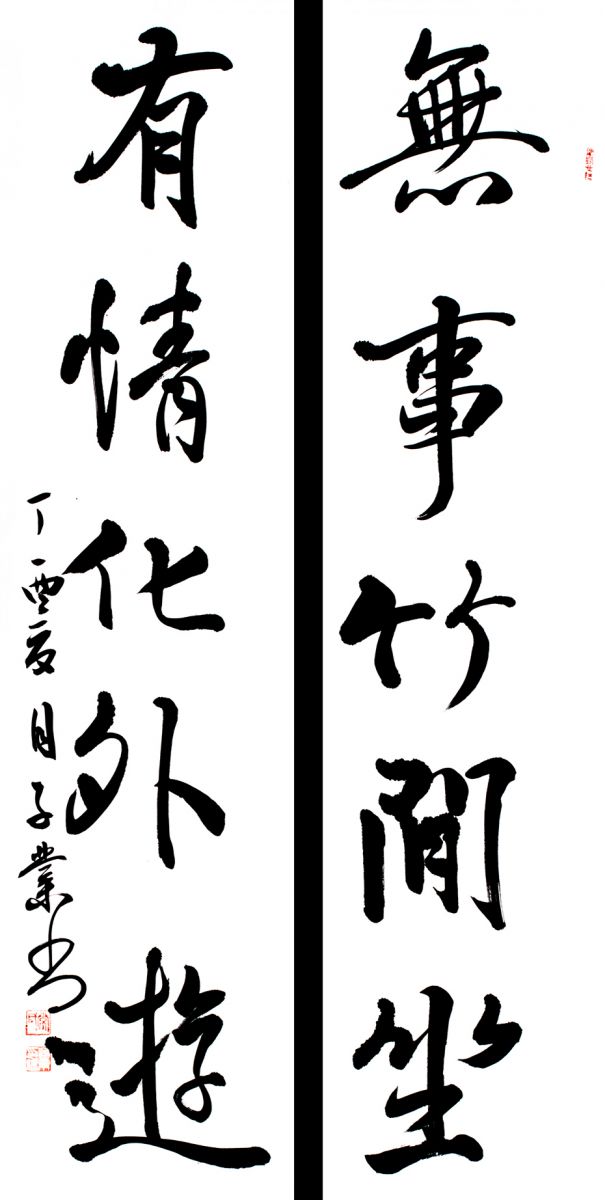 無事竹閒坐
有情化外遊
丁酉夏月子業书